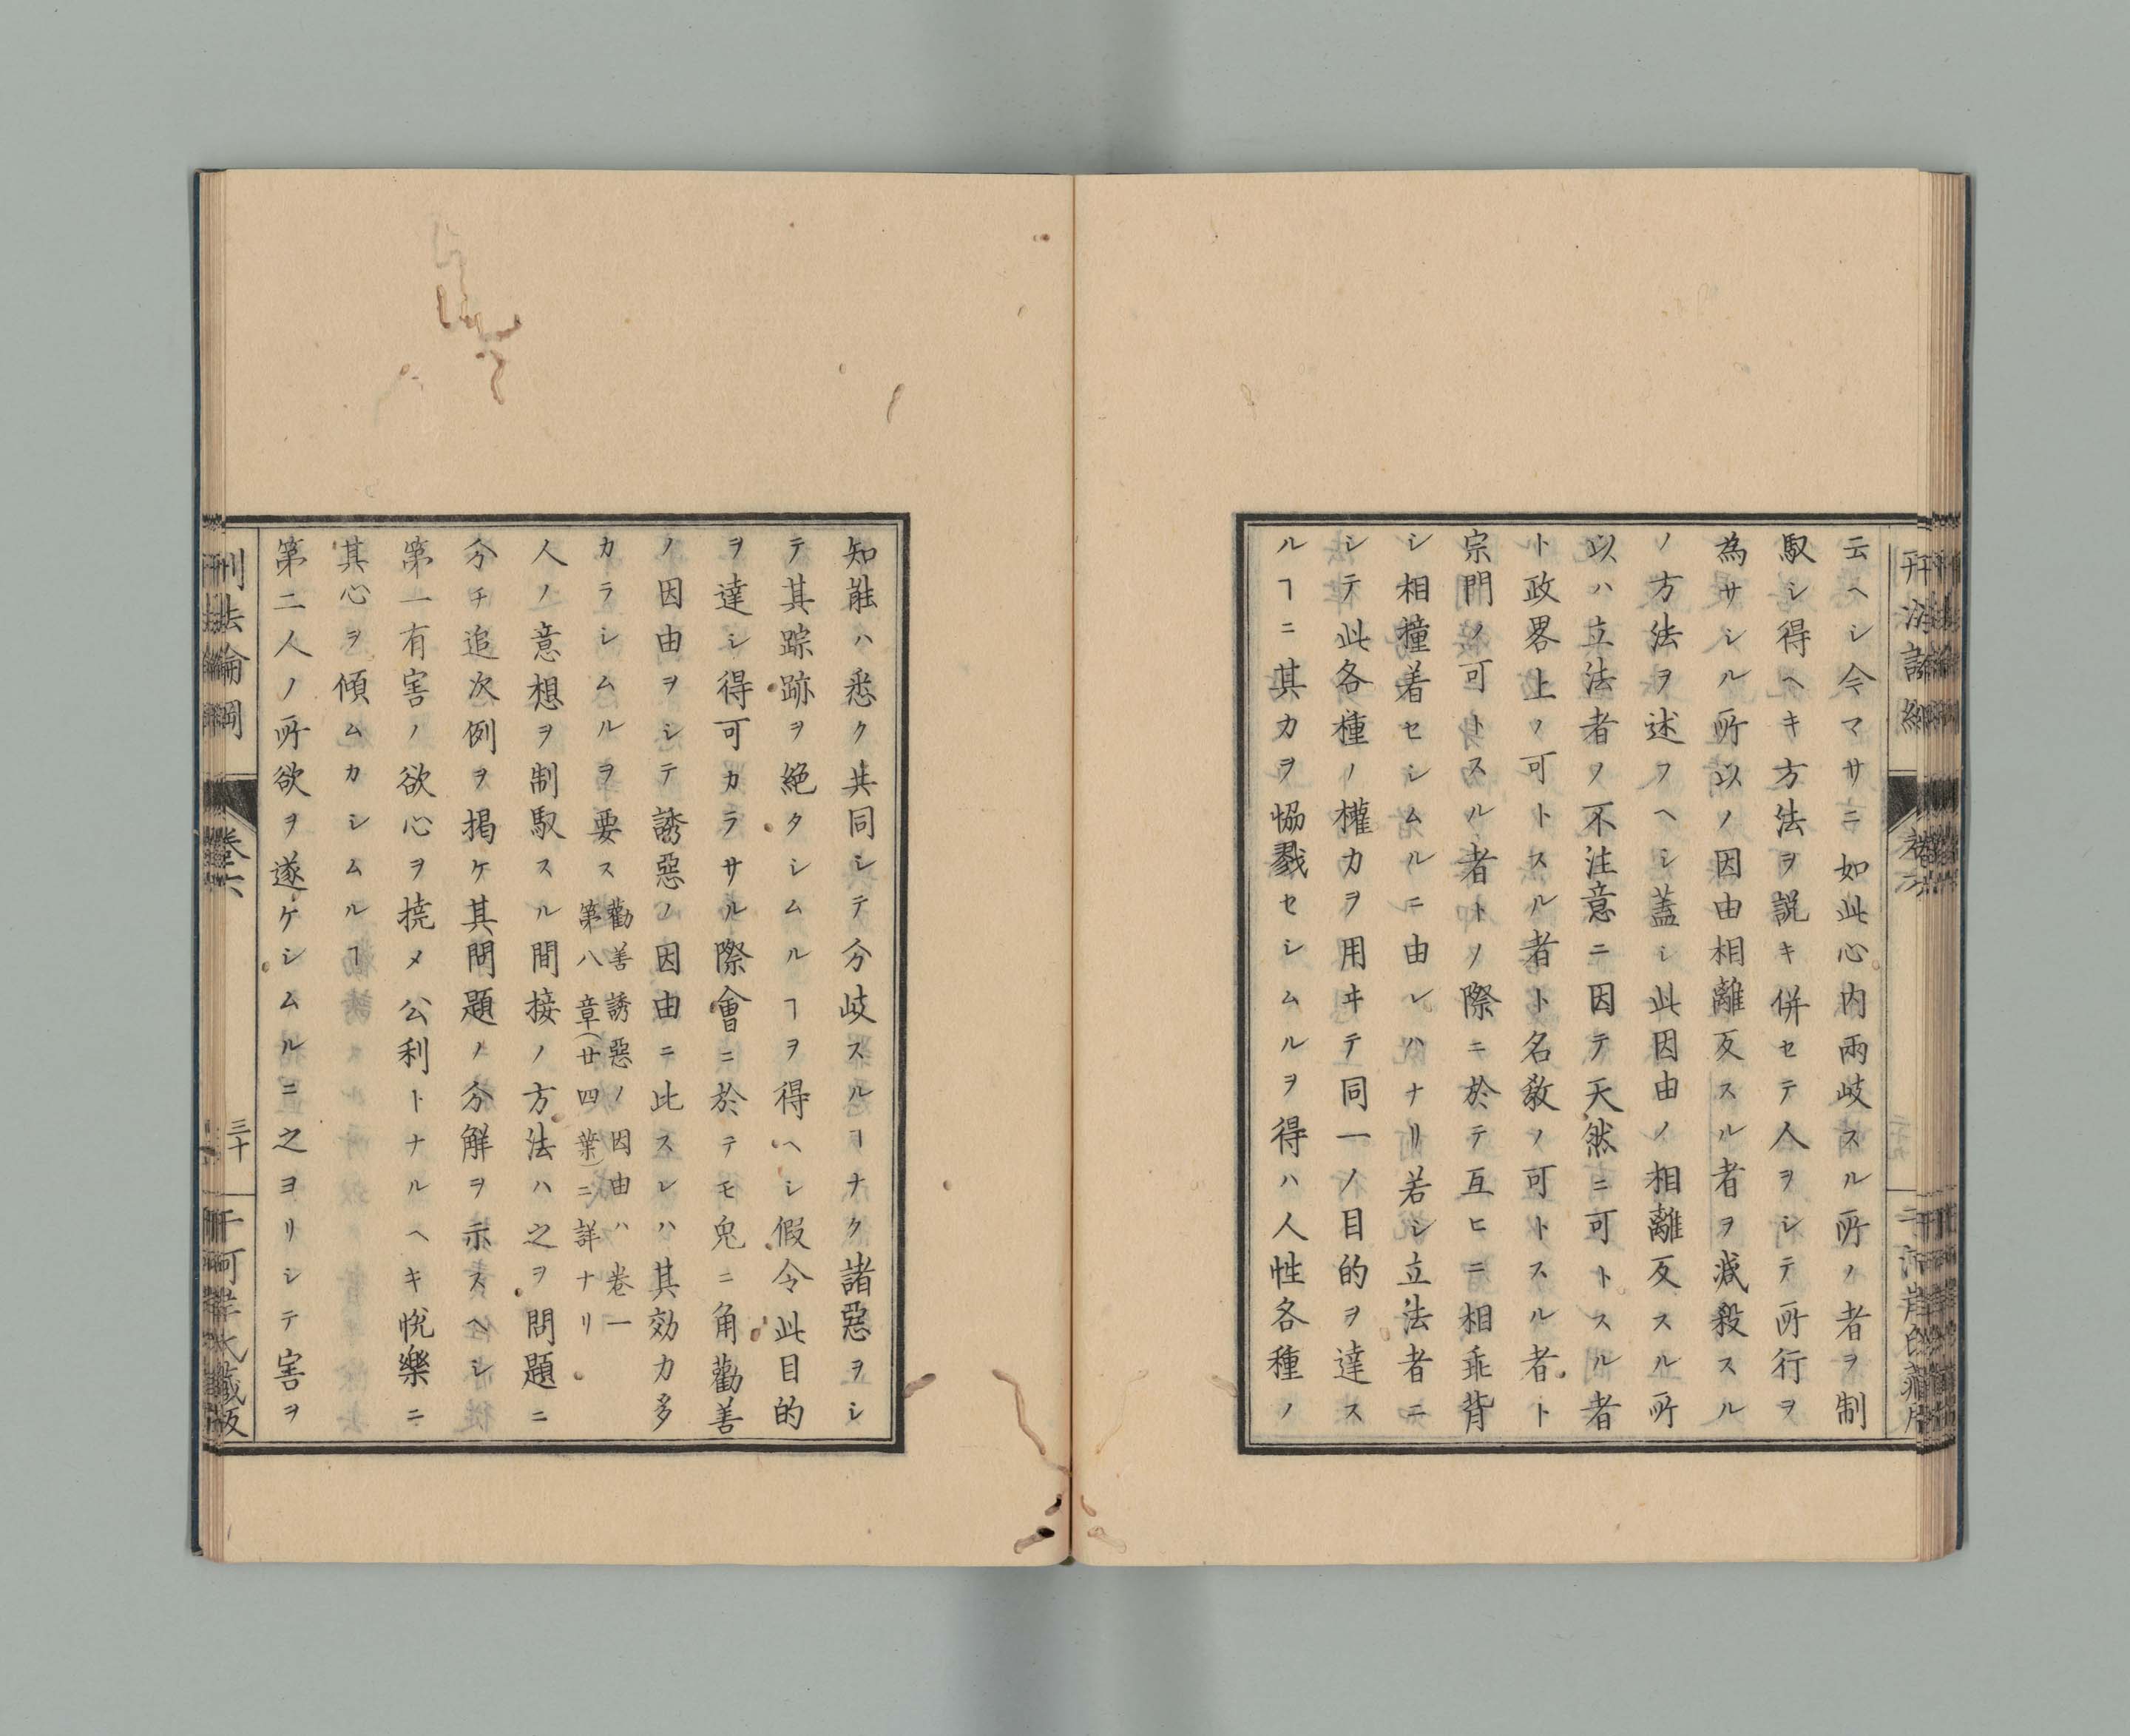 云ヘシ今マサニ如此心内兩岐スル所ノ者ヲ制
馭シ得ヘキ方法ヲ説キ併セテ人ヲシテ所行ヲ
為サシル所以ノ因由相離反スル者ヲ減殺スル
ノ方法ヲ述フヘシ蓋シ此因由ノ相離反スル所
以ハ立法者ノ不注意ニ因テ天然ニ可トスル者
ト政畧上ノ可トスル者ト名教ノ可トスル者ト
宗門ノ可トスル者トノ際ニ於テ互ヒニ相乖背
シ相撞着セシムルニ由レハナリ若シ立法者ニ
シテ此各種ノ權力ヲ用ヰテ同一ノ目的ヲ達ス
ルヿニ其力ヲ恊戮セシムルヲ得ハ人性各種ノ
知能ハ悉ク共同シテ分岐スルヿナク諸惡ヲシ
テ其踪跡ヲ絶タシムルヿヲ得ヘシ假令此目的
ヲ達シ得可カラサル際會ニ於テモ兎ニ角勸善
ノ因由ヲシテ誘惡ノ因由ニ比スレハ其効力多
カラシムルヲ要ス勸善誘惡ノ因由ハ卷一
第八章(廿四葉)ニ詳ナリ
人ノ意想ヲ制馭スル間接ノ方法ハ之ヲ問題ニ
分チ追次例ヲ掲ケ其問題ノ分解ヲ示スヘシ
第一有害ノ欲心ヲ撓メ公利トナルヘキ悦樂ニ
其心ヲ傾ムカシムルヿ
第二人ノ所欲ヲ遂ケシムルニ之ヨリシテ害ヲ
刑法論綱
卷六
三十